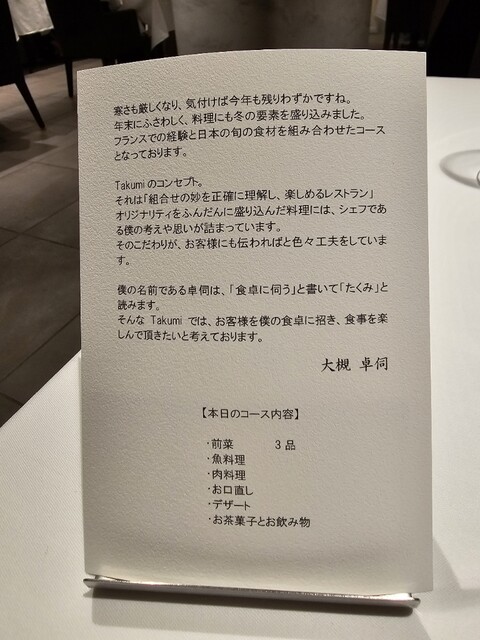 寒さも厳しくなり、気付けば今年も残りわずかですね。
年末にふさわしく、料理にも冬の要素を盛り込みました。
フランスでの経験と日本の旬の食材を組み合わせたコース
となっております。
Takumiのコンセプト。
それは「組合せの妙を正確に理解し、楽しめるレストラン」
オリジナリティをふんだんに盛り込んだ料理には、シェフであ
る僕の考えや思いが詰まっています。
そのこだわりが、お客様にも伝わればと色々工夫をしていま
す。
僕の名前である卓伺は、「食卓に伺う」と書いて「たくみ」と
読みます。
そんな Takumi では、お客様を僕の食卓に招き、食事を楽
しんで頂きたいと考えております。
大槻 卓伺
【本日のコース内容】
・前菜 3品
・魚料理
・肉料理
・お口直し
・デザート
・お茶菓子とお飲み物